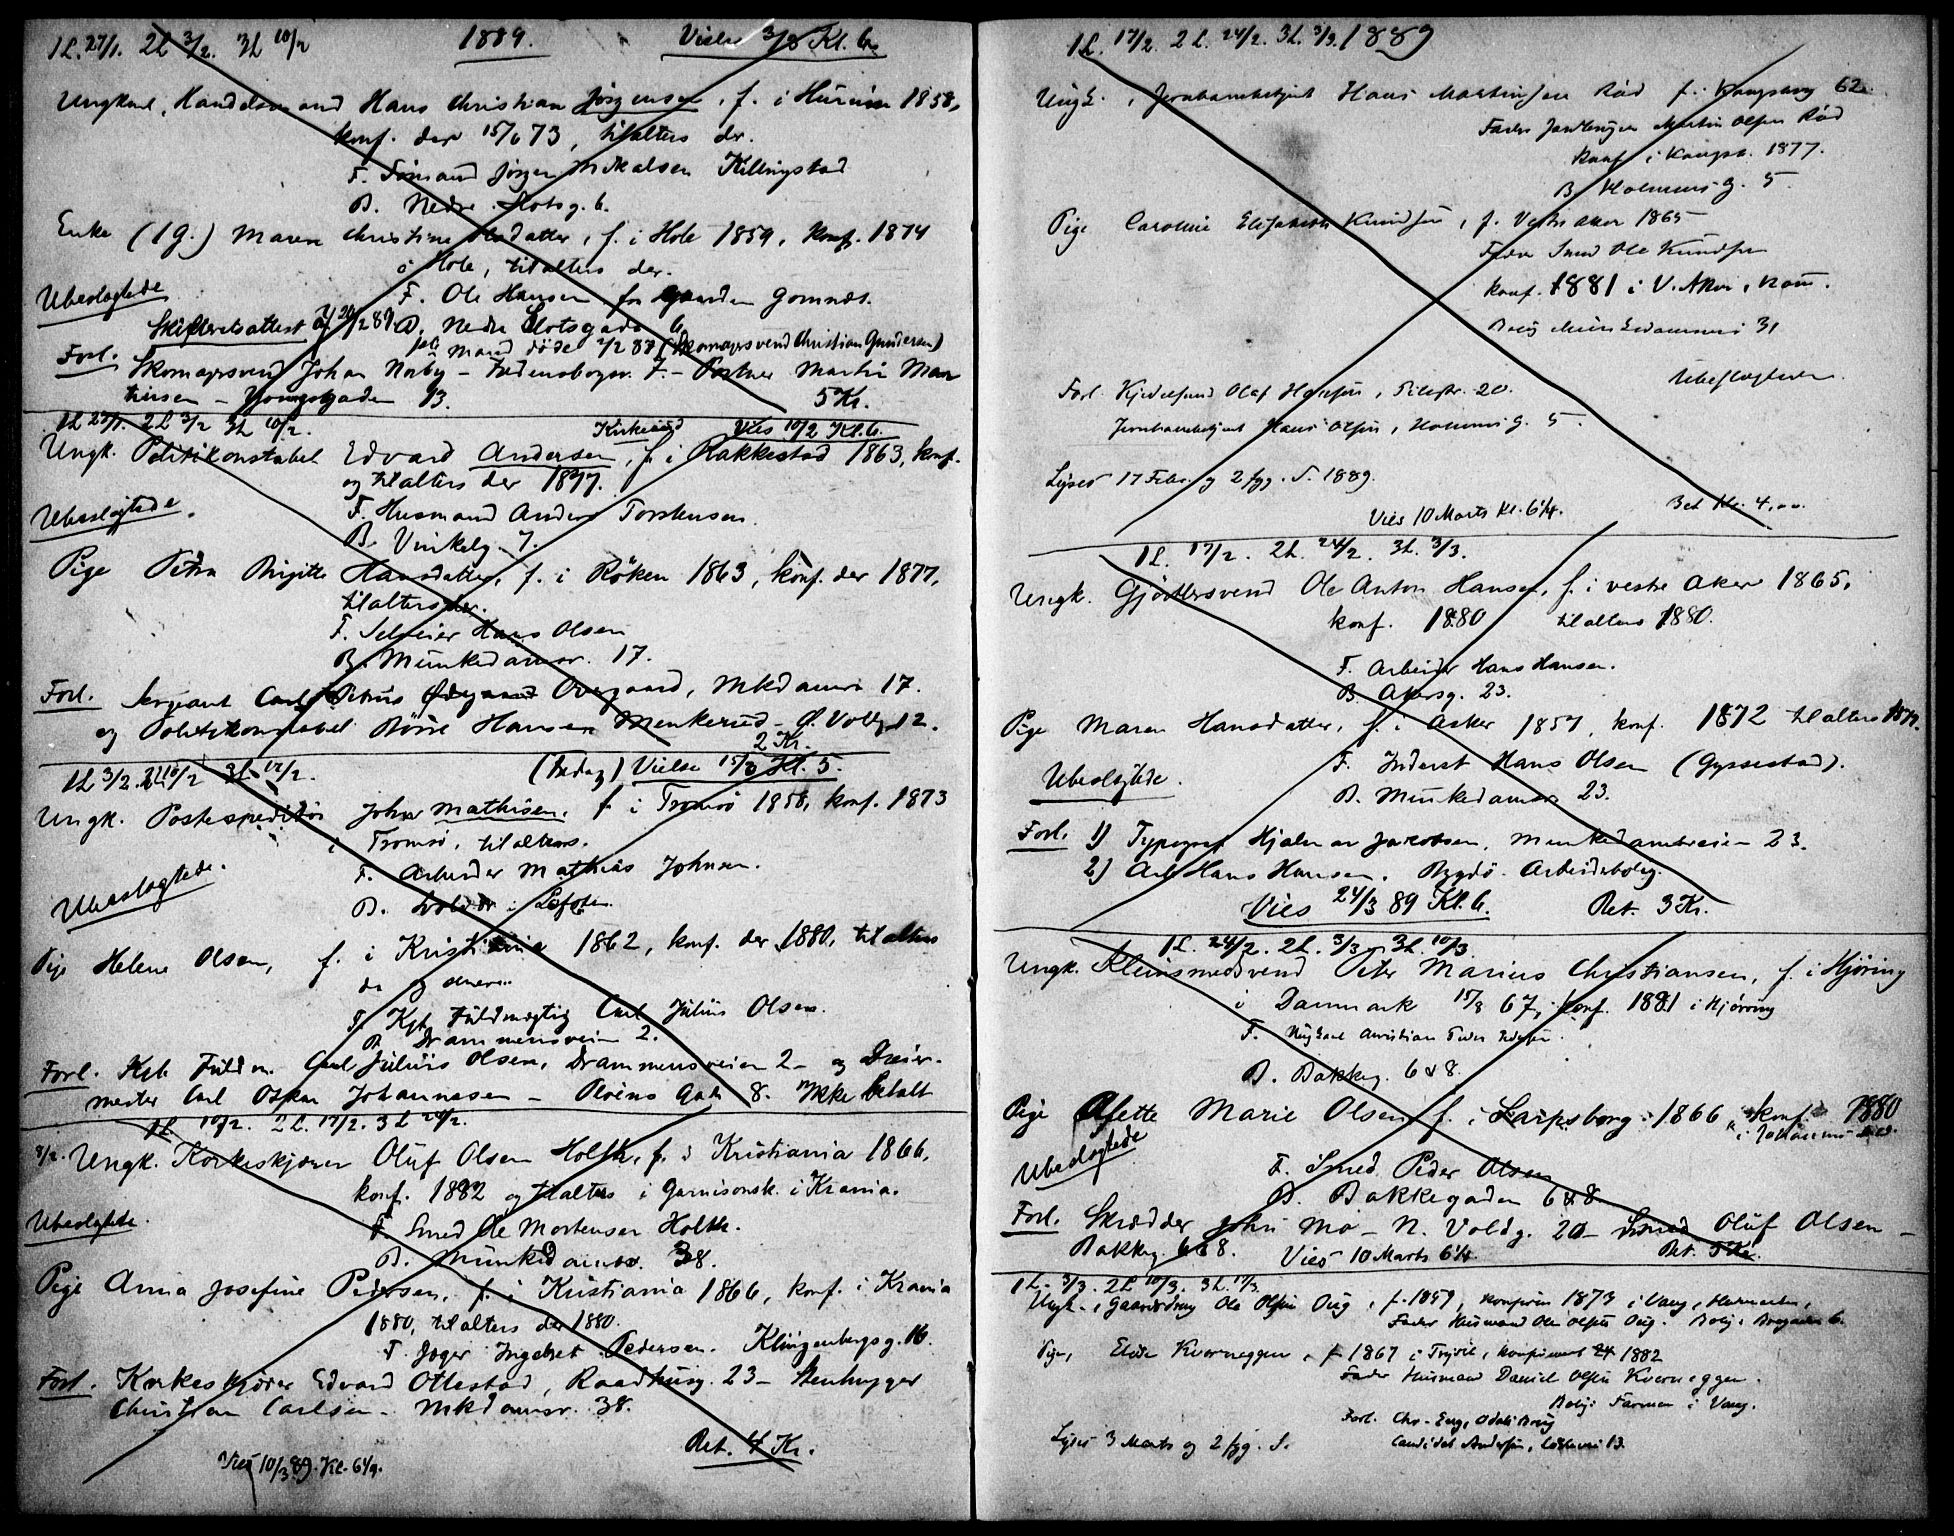 1 L. 27/1. 2 L 3/2. 3 L 10/2 1889. Vielse 3/3 Kl. 6.
Ungkarl, Handelsmand Hans Christian Jørgensen, f. i Hurum 1858,
konf. der 15/6 73, tilalters dr.
F. Jørgen Mikalsen Killingstad
B. Nedre Slotsg. 6.
Enke (1 g.) Maren Christine Olsdatter, f. i Hole 1859, konf. 1874
i Hole, tilalters der.
Ubeslægtede F. Ole Hansen fra Gaarden Gomnæs.
Skifteretsattest af 2/2 89. B. Nedre Slotsgade 6.
Mand døde 7/2 88 (Skomagersvend Christian Gundersen)
Forl. Skomagersvend Johan Norby – F. – Martin Mar
tinsen – Youngsgaden 13. 5 Kr.
1 L 27/1. 2 L 3/2 3 L 10/2. Vies 10/2 Kl. 6.
Ungk. Politikonstabel Edvard Andersen, f. i Rakkestad 1863, konf.
og tilalters der 1877.
Ubeslægtede. F. Husmand Anders Torstensen.
B. Vinkelg. 7.
Pige Petra Birgitte Hansdatter, f. i Røken 1863, konf. der 1877,
tilalters der.
F. Selveier Hans Olsen
B. Munkedamsv. 17.
Forl. Sergeant Carl Petrus Overgaard, Mkdamsv 17.
og Politikonstabel Hansen Menkerud – Ø. Voldg. 12.
2 Kr.
1 L 3/2. 2 L 10/2 3 L. 17/2. (Fredag) Vielse 15/3 Kl. 5.
Ungk. Postexpeditør Johan Mathisen, f. i Tromsø 1858, konf. 1873
i Tromsø, tilalters.
Ubeslægtede. F. Arbeider Mathias Johnsen.
B. Svolvær i Lofoten.
Pige Helene Olsen, f. i Kristiania 1862, konf. der 1880, tilalters
der og senere.
F. Kgl. Fuldmægtig Carl Julius Olsen.
B. Drammensveien 2.
Forl. Kgl. Fuldm. Carl Julius Olsen, Drammensveien 2 – og Dreier-
mester Carl Oskar Johannesen – Gade 8. Ikke betalt
1 L. 10/2. 2 L. 17/2. 3 L 24/2.
8/2. Ungk. Korkeskjærer Oluf Olsen Holth, f. i Kristiania 1866,
konf. 1882 og tilalters i Garnisonsk. i Krania.
Ubeslægtede. F. Smed Ole Mortensen Holth.
B. Munkedamsv. 38.
Pige Anna Josefine Pedersen, f. i Kristiania 1866, konf. i Krania
1880, tilalters der 1880.
F. Jæger Ingebret Pedersen. Klingenbergsg. 16.
Forl. Korkeskjærer Edvard Ottestad, Raadhusg. 23 – Stenhugger
Christian Carlsen – Mkdamsv. 38.
Bet. 4 Kr.
Vies 10/3 89. Kl. 6 1/4.
1 L. 17/2. 2 L. 24/2. 3 L. 3/3. 1889
Ungk., Jernbanebetjent Hans Martinsen Rød f. Kongsberg 62.
Fader Martin Olsen Rød
Konf. i Kongsb. 1877.
B. Holmens G. 5.
Pige Caroline Elisabeth Knudsen, f. Vestre Aker 1865
Fader Smed Ole Knudsen
Konf. 1881 i V. Aker.
Bolig Munkedamsvei 31
Ubeslægtede.
Forl. Kjedelsmed Olaf Hansen, Pilestr. 20.
Jernbanebetjent Hans Olsen, Holmens G. 5.
Lyses 17 Febr. og 2 flg. S. 1889.
Vies 10 Marts Kl. 6 1/4. Bet Kr. 4,00.
1 L. 17/2. 2 L. 24/2. 3 L. 3/3.
Ungk. Gjørtlersvend Ole Anton Hansen, f. i vestre Aker 1865,
konf. 1880 tilalters 1880.
F. Arbeider Hans Hansen.
B. Akersg. 23.
Pige Maren Hansdatter, f. i Asker 1857, konf. 1872 tilalters
F. Inderst Hans Olsen (Gyssestad).
Ubeslægtede. B. Munkedamsv 23.
Forl. 1) Typograf Hjalmar Jakobsen, Munkedamsveien 23.
2) Arb. Hans Hansen. Bygdø. Arbeiderbolig.
Vies 24/3 89 Kl. 6. Bet. 3 Kr.
1 L. 24/2. 2 L. 3/3 3 L. 10/3.
Ungk. Kleinsmedsvend Peter Marius Christiansen, f. i Hjøring
i Danmark 15/8 67, konf. 1881 i Hjørring
F. Christian
B. Bakkeg. 6 & 8.
Pige Alette Marie Olsen f. i Sarpsborg 1866 konf. 1880
Ubeslægtede F. Smed Peder Olsen
B. Bakkegaden 6 & 8
Forl. Skrædder John Mo – N. Voldg. 20 – Smed Oluf Olsen –
Bakkeg. 6 & 8. Vies 10 Marts 6 1/4 Bet. 5 Kr.
1 L. 3/3. 2 L 10/3. 3 L. 17/3.
Ungk., Gaardsdreng Ole Olsen, f. 1859, konfirm 1873 i Vang, Hedemarken,
Fader Husmand Ole Olsen. Bolig:
Pige, Kverneggen, f. 1867 i Trysil, konfirmeret 1882
Fader Husmand Daniel Olsen Kverneggen.
Bolig: Farmen i Vang.
Forl. Chr. Eng,
Lyses 3 Marts og 2 flg. S. Candidat Andersen, 13.